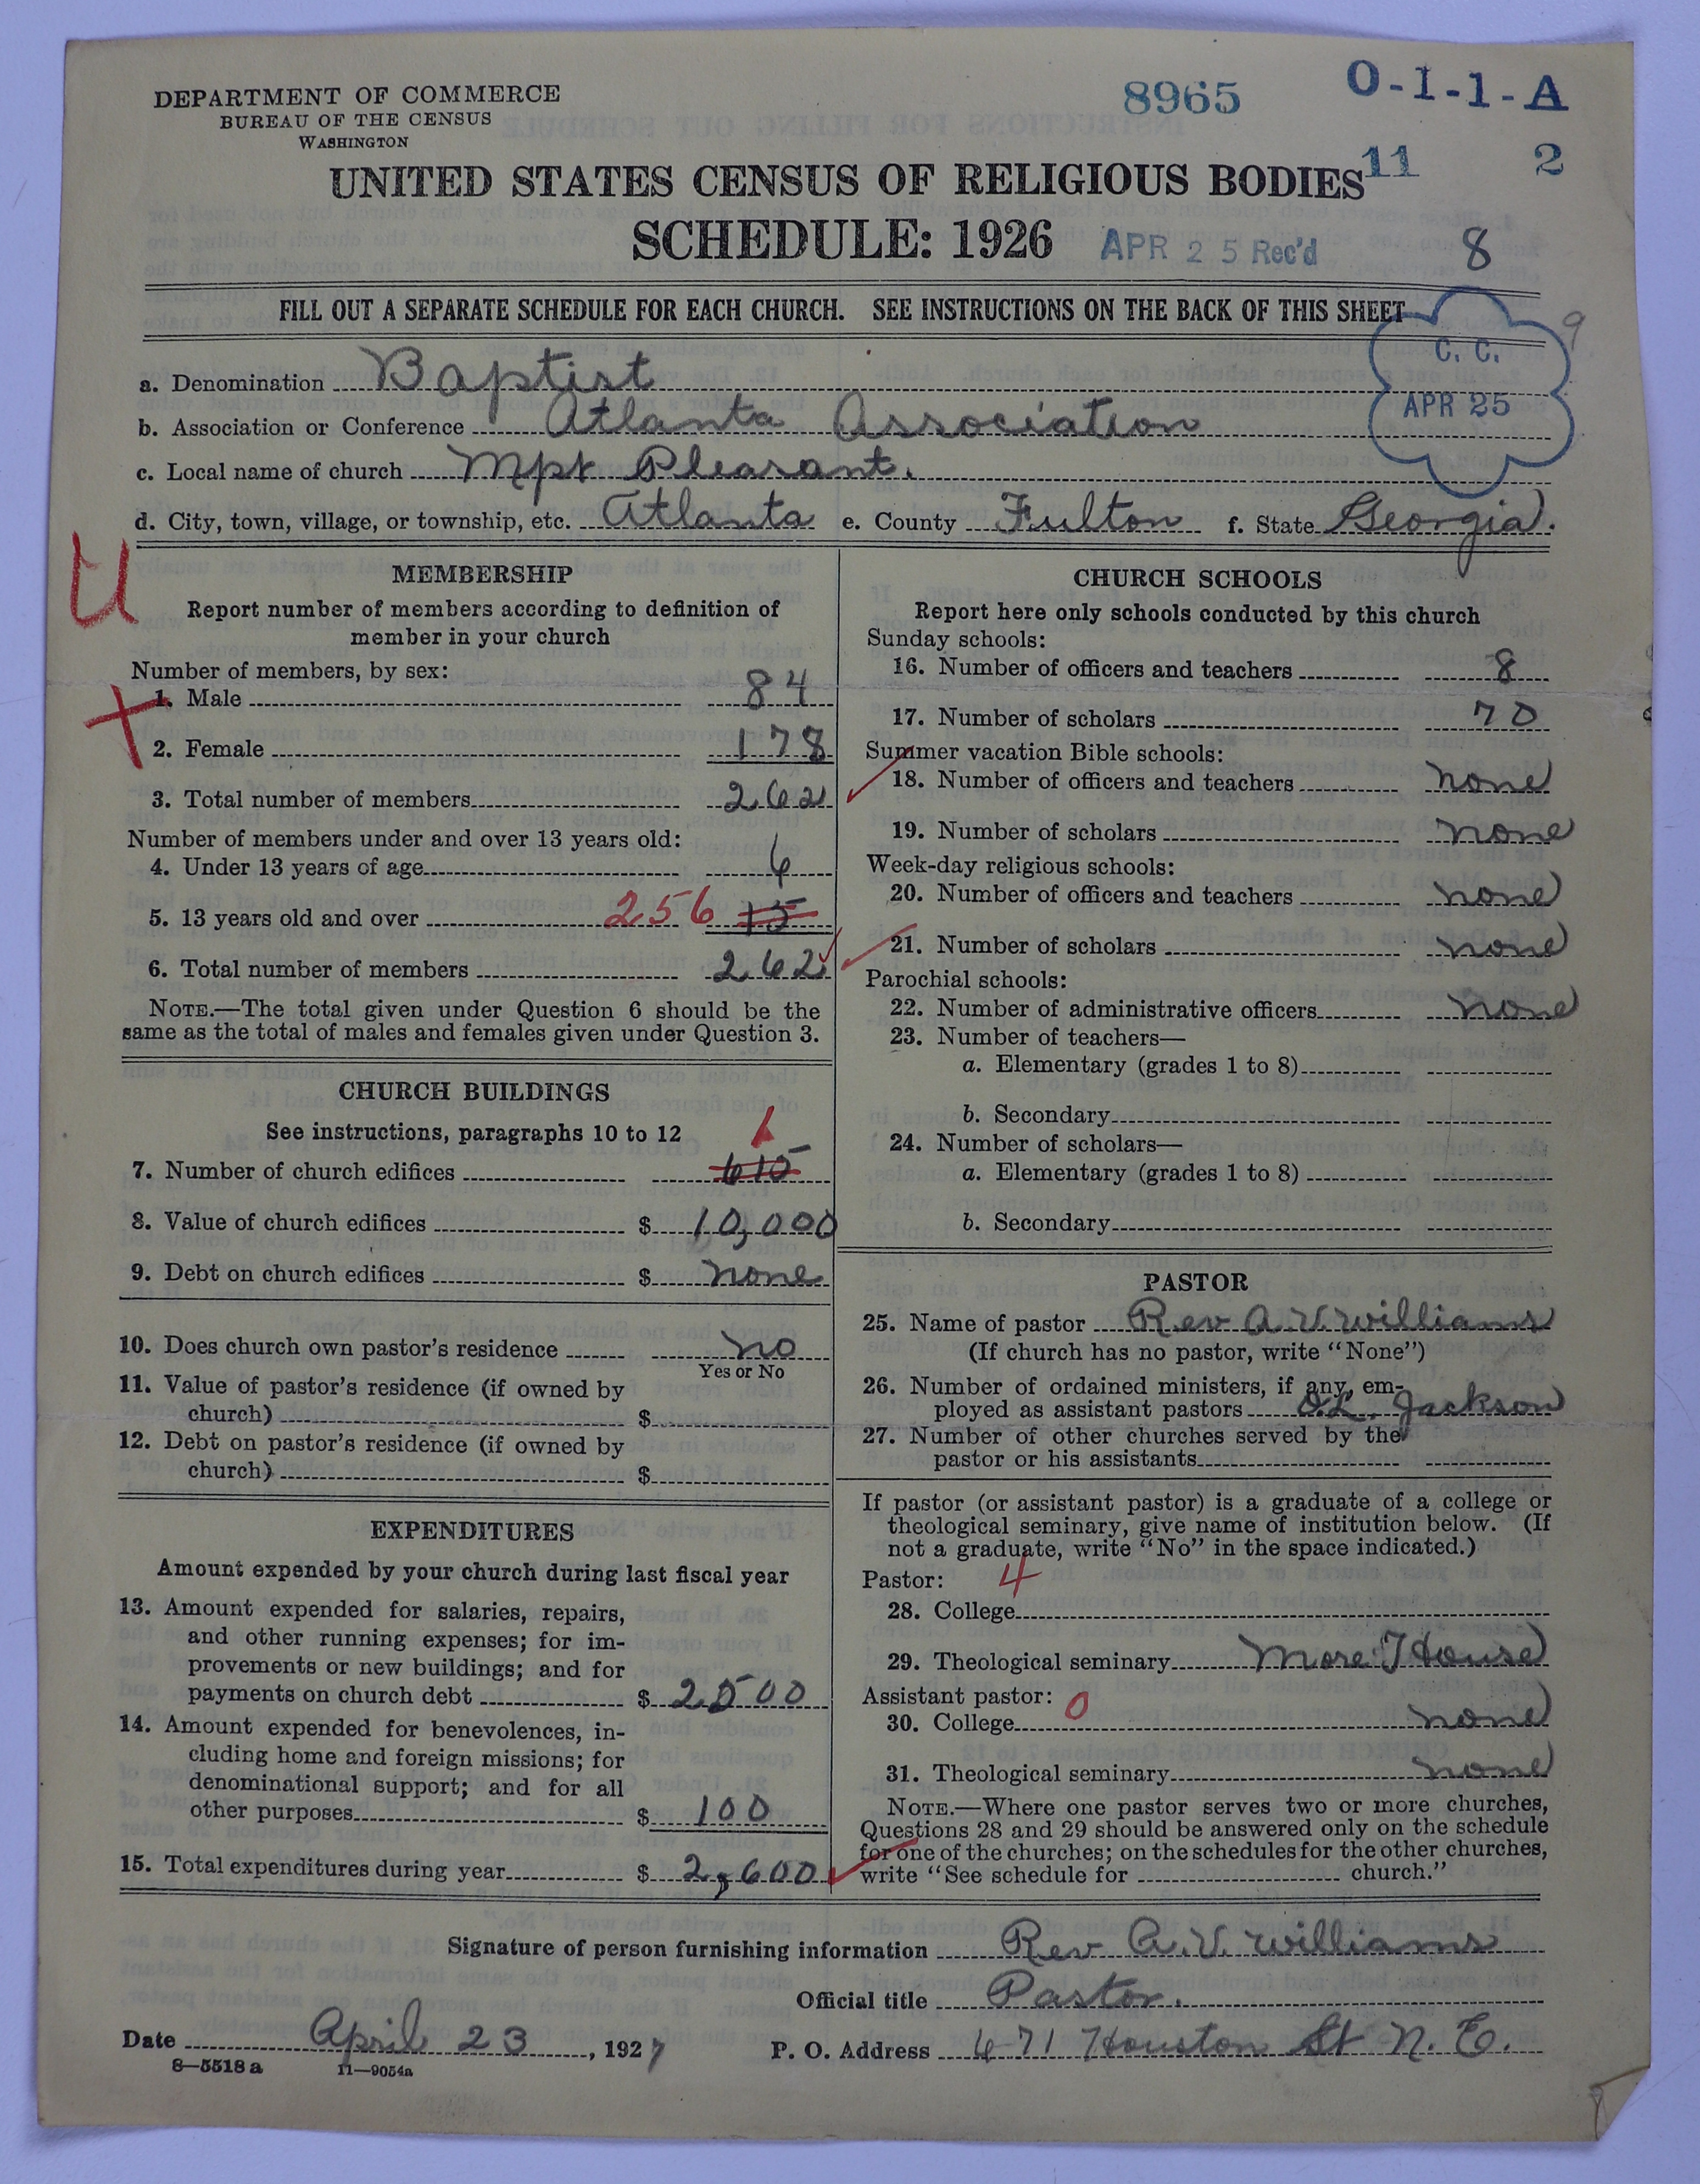 DEPARTMENT OF COMMERCE
BUREAU OF THE CENSUS
WASHINGTON
8965
O-1-1-A
11 2
UNITED STATES CENSUS OF RELIGIOUS BODIES
SCHEDULE: 1926
APR 25 Rec'd
8
FILL OUT A SEPARATE SCHEDULE FOR EACH CHURCH. SEE INSTRUCTIONS ON THE BACK OF THIS SHEET
9
C. C.
APR 25
a. Denomination Baptist
b. Association or Conference Atlanta Association
c. Local name of church Mpt Pleasant.
d. City, town, village, or township, etc. Atlanta e. County Fulton f. State Georgia.
U
MEMBERSHIP
Report number of members according to definition of
member in your church
Number of members, by sex:
1. Male 84
2. Female 178
3. Total number of members 262
Number of members under and over 13 years old:
4. Under 13 years of age 6
5. 13 years old and over 256 15
6. Total number of members 262
NOTE.—The total given under Question 6 should be the
same as the total of males and females given under Question 3.
CHURCH BUILDINGS
See instructions, paragraphs 10 to 12
1
7. Number of church edifices 615
8. Value of church edifices $ 10,000
9. Debt on church edifices $ none
10. Does church own pastor's residence no
Yes or No
11. Value of pastor's residence (if owned by
church) $
12. Debt on pastor's residence (if owned by
church) $
EXPENDITURES
Amount expended by your church during last fiscal year
13. Amount expended for salaries, repairs,
and other running expenses; for im-
provements or new buildings; and for
payments on church debt $ 2500
14. Amount expended for benevolences, in-
cluding home and foreign missions; for
denominational support; and for all
other purposes $ 100
15. Total expenditures during year $ 2,600
CHURCH SCHOOLS
Report here only schools conducted by this church
Sunday schools:
16. Number of officers and teachers 8
17. Number of scholars 70
Summer vacation Bible schools:
18. Number of officers and teachers none
19. Number of scholars none
Week-day religious schools:
20. Number of officers and teachers none
21. Number of scholars none
Parochial schools:
22. Number of administrative officers none
23. Number of teachers—
a. Elementary (grades 1 to 8)
b. Secondary
24. Number of scholars—
a. Elementary (grades 1 to 8)
b. Secondary
PASTOR
25. Name of pastor Rev A. V. Williams
(If church has no pastor, write "None")
26. Number of ordained ministers, if any, em-
ployed as assistant pastors O.L. Jackson
27. Number of other churches served by the
pastor or his assistants
If pastor (or assistant pastor) is a graduate of a college or
theological seminary, give name of institution below. (If
not a graduate, write "No" in the space indicated.)
Pastor: 4
28. College
29. Theological seminary More House
Assistant pastor: 0
30. College none
31. Theological seminary none
NOTE.—Where one pastor serves two or more churches,
Questions 28 and 29 should be answered only on the schedule
for one of the churches; on the schedules for the other churches,
write "See schedule for church."
Signature of person furnishing information Rev A. V. Williams
Official title Pastor.
Date April 23, 1927 P. O. Address 671 Houston St N. E.
8—5518 a 11—9054a